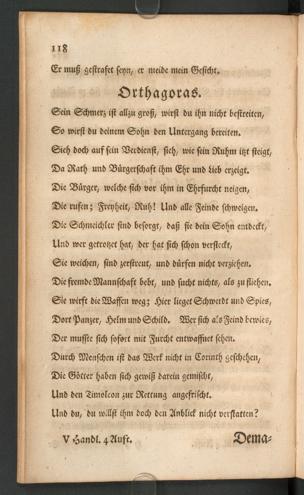 118
Er muß gestrafet seyn, er meide mein Gesicht.
Orthagoras.
Sein Schmerz ist allzu groß, wirst du ihn nicht bestreiten,
So wirst du deinem Sohn den Untergang bereiten.
Sieh doch auf sein Verdienst, sieh, wie sein Ruhm itzt steigt,
Da Rath und Bürgerschaft ihm Ehr und Lieb erzeigt.
Die Bürger, welche sich vor ihm in Ehrfurcht neigen,
Die rufen; Freyheit, Ruh! Und alle Feinde schweigen.
Die Schmeichler sind besorgt, daß sie dein Sohn entdeckt,
Und wer getrotzet hat, der hat sich schon versteckt,
Sie weichen, sind zerstreut, und dürfen nicht verziehen.
Die fremde Mannschaft bebt, und sucht nichts, als zu fliehen.
Sie wirft die Waffen weg; Hier lieget Schwerdt und Spies,
Dort Panzer, Helm und Schild. Wer sich als Feind bewies,
Der mußte sich sofort mit Furcht entwaffnet sehen.
Durch Menschen ist das Werk nicht in Corinth geschehen,
Die Götter haben sich gewiß darein gemischt,
Und den Timoleon zur Rettung angefrischt.
Und du, du willst ihm doch den Anblick nicht verstatten?
V Handl. 4 Auft. Dema-